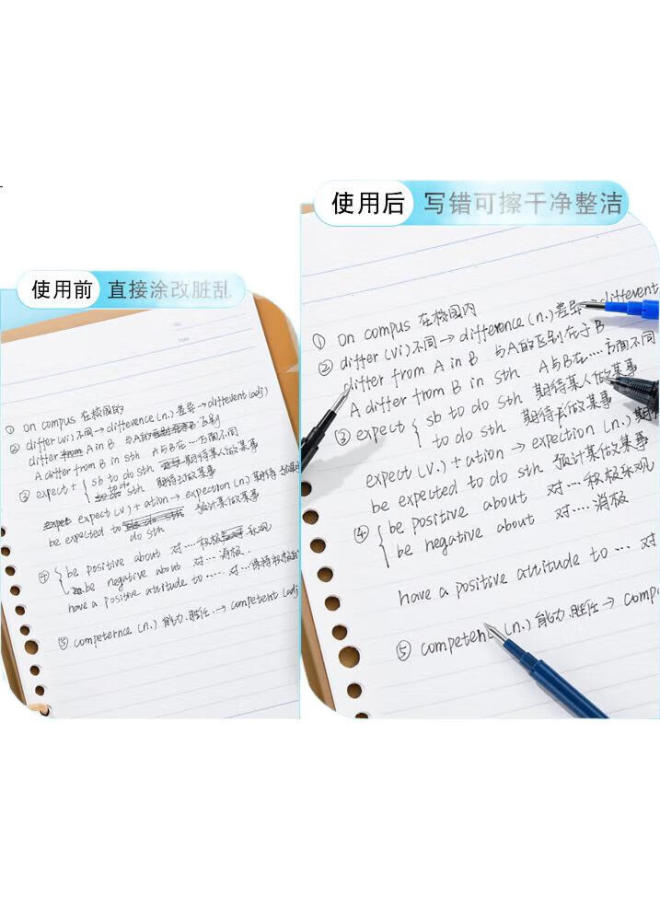 使用前 直接涂改脏乱
① on compus 在校园内
② differ (vi) 不同 → difference (n.) 差异 → different (adj)
differ from A in B 与A的区别
A differ from B in sth A与B在…方面不同
③ expect + { sb to do sth 期待某人做某事
to do sth 期待去做某事
expect (v.) + ation → expection (n.) 期待
be expected to do sth 预计某做某事
do sth
④ { be positive about 对…积极乐观
be negative about 对…消极
have a positive attitude to … 对…保持积极
⑤ competernce (n.) 能力、胜任 → competent (adj
使用后 写错可擦干净整洁
① on compus 在校园内
② differ (vi) 不同 → difference (n.) 差异 → different
differ from A in B 与A的区别在于B
A differ from B in sth A与B在…方面不同
③ expect { sb to do sth 期待某人做某事
to do sth 期待去做某事
expect (v.) + ation → expection (n.) 期
be expected to do sth 预计某做某事
④ { be positive about 对…积极乐观
be negative about 对…消极
have a positive attitude to … 对
⑤ competen (n.) 能力、胜任 → comp